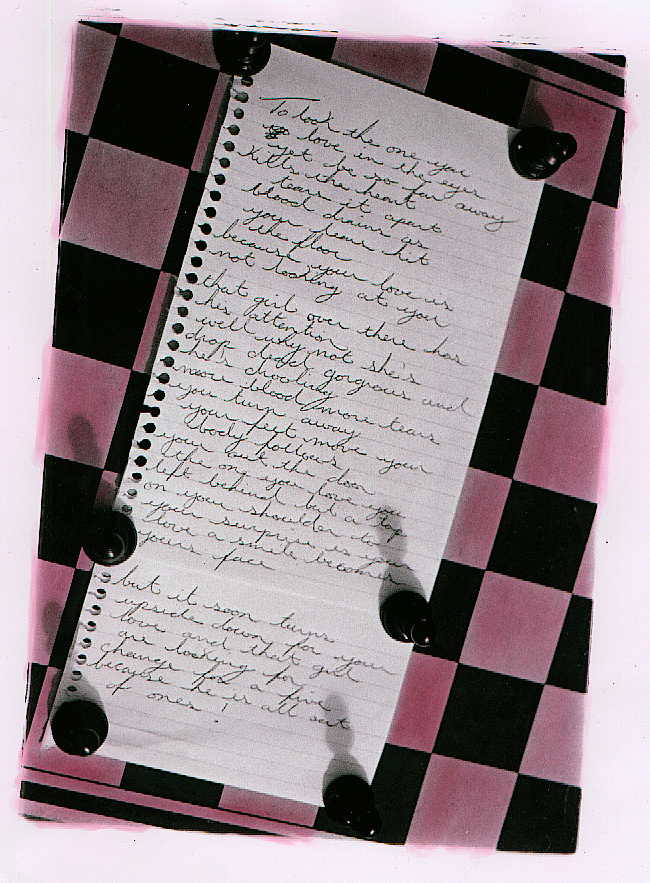 To look the one you
love in the eyes
yet be so far away
Kills the heart
tears it apart
blood drains as
your tears hit
the floor
because your love is
not looking at you
that girl over there has
his attention
well why not she's
drop dead gorgous and
he's drooling
more blood more tears
you turn away
your feet move your
body follows
your out the door
the one you love you
left behind but a tap
on your shoulder to
your surprise is your
love a smile becomes
yours face
but it soon turns
upside down for your
love and that girl
are looking for
change for a five
because he is all out
of ones!